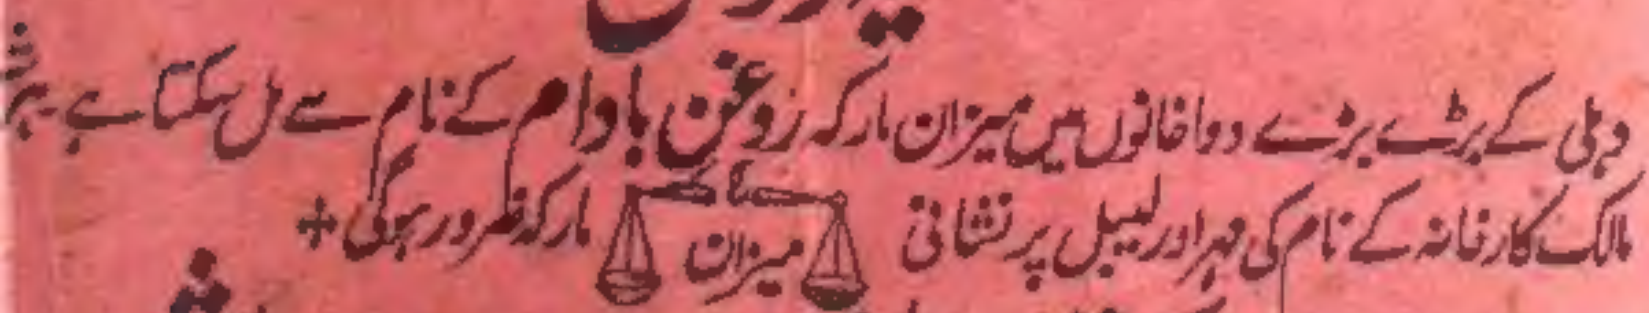 دہلی کے بڑے بڑے دواخانوں میں میزان مارکہ روغن بادام کے نام سے مل سکتا ہے
مالک کارخانہ کے نام کی مہر اور لیبل پر نشانی میزان مارکہ ضرور ہوگی